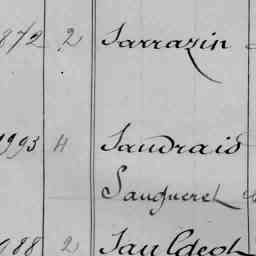 872 2 Sarrazin
1993 4 Saudrais
Saugueret
988 2 Sauldeot